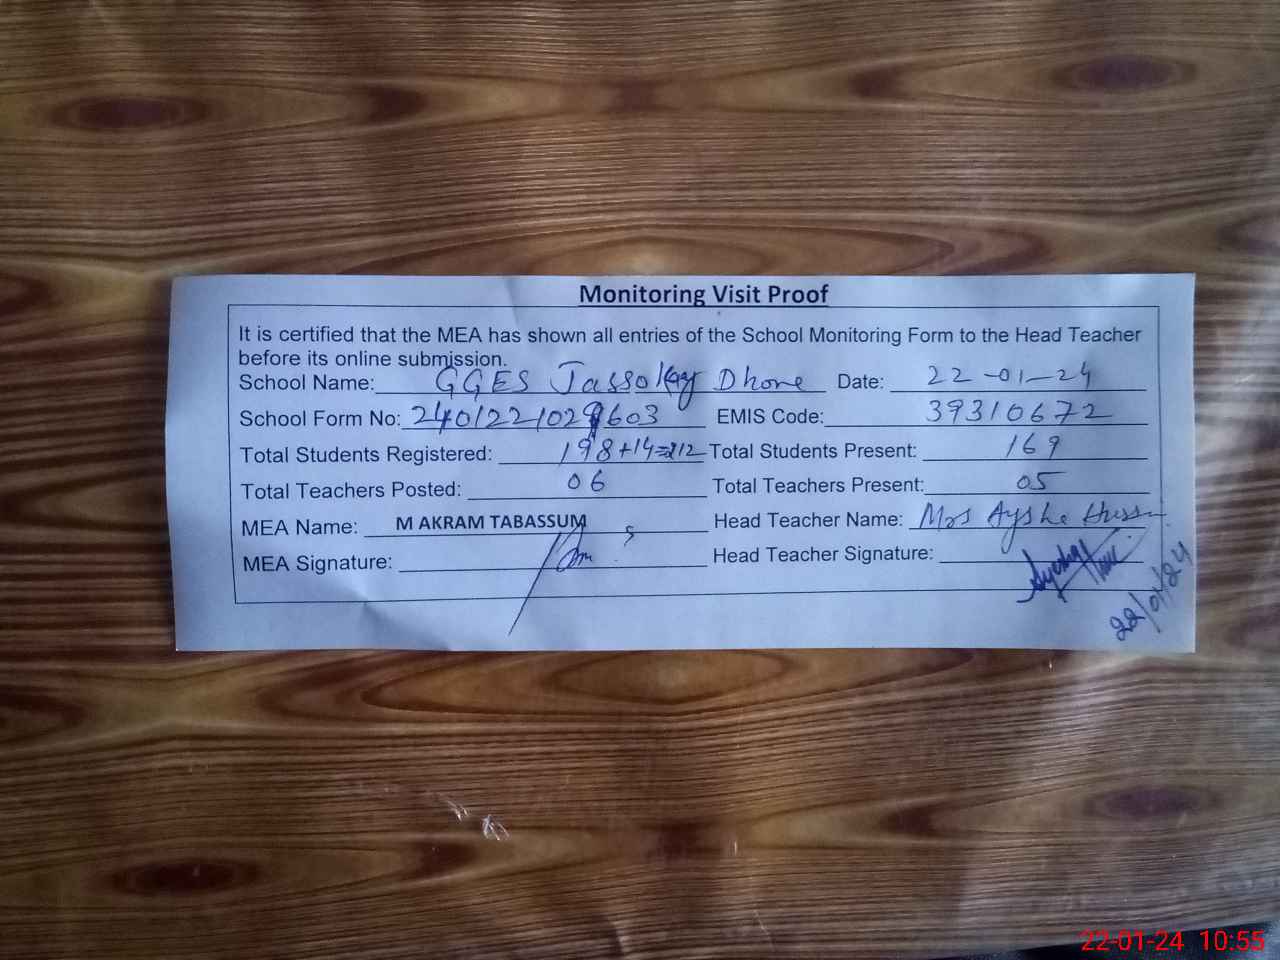 Monitoring Visit Proof
It is certified that the MEA has shown all entries of the School Monitoring Form to the Head Teacher
before its online submission.
School Name: GGES Jassokay Dhone Date: 22-01-24
School Form No: 240122102 603 EMIS Code: 39310672
Total Students Registered: 198+14=212 Total Students Present: 169
Total Teachers Posted: 06 Total Teachers Present: 05
MEA Name: M AKRAM TABASSUM Head Teacher Name: Mrs Aysha
MEA Signature: Head Teacher Signature:
22/01/24
22-01-24 10:55